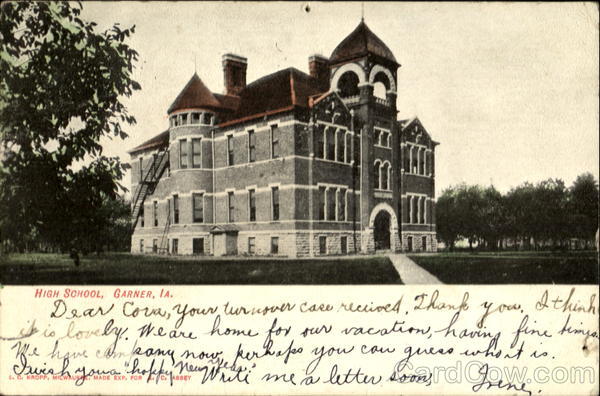 HIGH SCHOOL, GARNER, IA.
Dear Cora, Your turnover case received. Thank you. I think
it is lovely. We are home for our vacation, having fine times.
We have company now, perhaps you can guess who it is.
I wish you a happy New Year. Write me a letter soon,
Irene,
E. C. KROPP, MILWAUKEE. MADE EXP. FOR C. ABBEY
CardCow.com